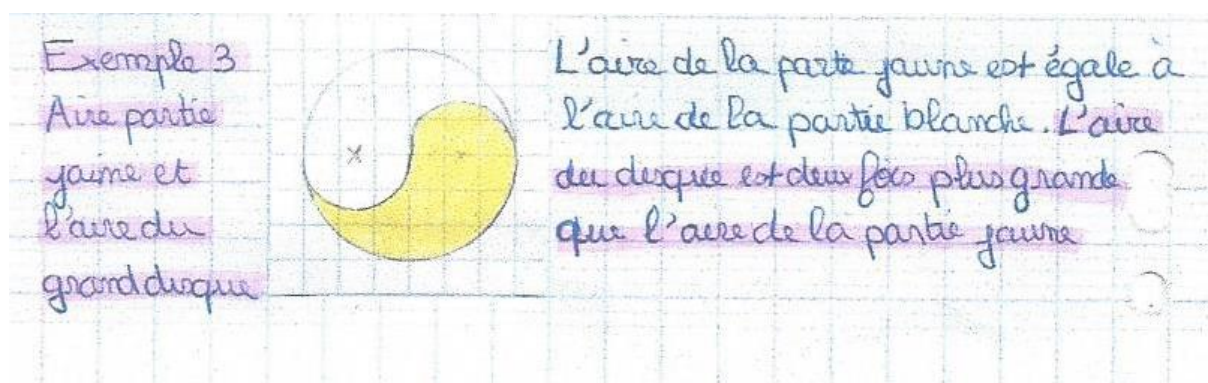 Exemple 3
Aire partie
jaune et
l'aire du
grand disque
L'aire de la partie jaune est égale à
l'aire de la partie blanche. L'aire
du disque est deux fois plus grande
que l'aire de la partie jaune